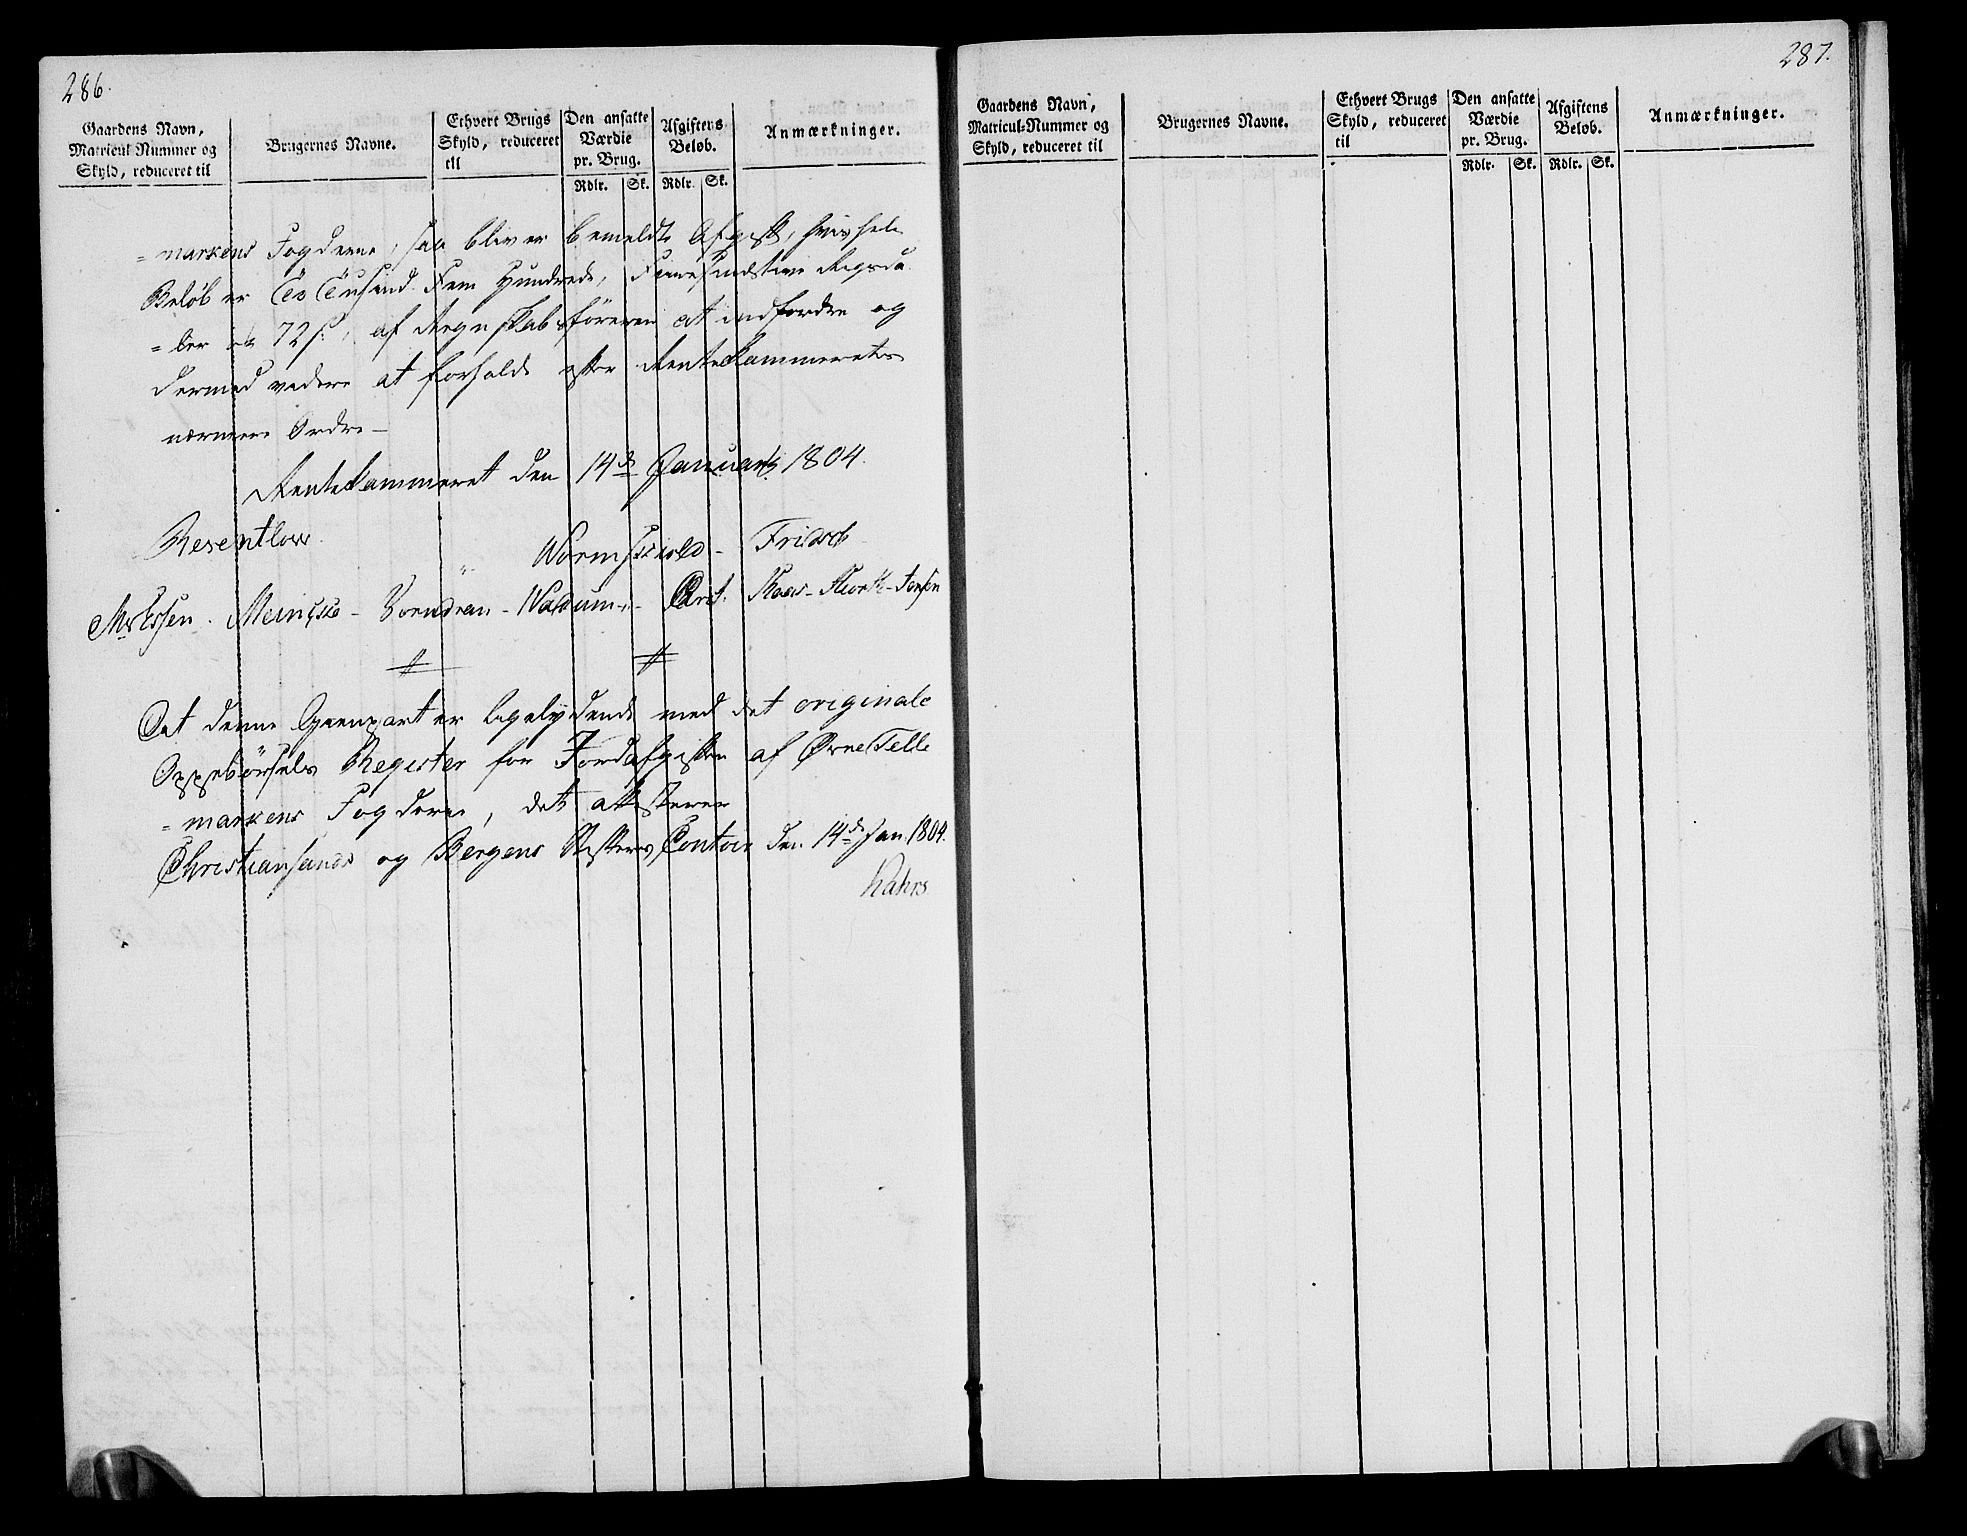 286.
Gaardens Navn,
Matricul Nummer og
Skyld, reduceret til
Brugernes Navne.
Ethvert Brugs
Skyld, reduceret
til
Den ansatte
Værdie
pr. Brug.
Rdlr. Sk.
Afgiftens
Beløb.
Rdlr. Sk.
Anmærkninger.
=markens Fogderie, saa bliver bemeldte Afgift, hvis hele
Beløb er Toe Tusind Fem Hundrede, Rigsda
=ler og 72 s:, af Regnskabsføreren at indfordre og
dermed videre at forholde efter Rentekammerets
nærmere Ordre—
Rentekammeret den 14de Januarii 1804.
Reventlow.
Wormskiold - Fridsch
Meincke - Vorndran - - Knorr -
At denne Gienpart er ligelydende med det originale
Oppebørsels Register for Jordafgiften af Øvre Telle
=markens Fogderie, det attesterer
Christiansands og Bergens Stifters Contoir den 14de Jan. 1804.
287.
Gaardens Navn,
Matricul-Nummer og
Skyld, reduceret til
Brugernes Navne.
Ethvert Brugs
Skyld, reduceret
til
Den ansatte
Værdie
pr. Brug.
Rdlr. Sk.
Afgiftens
Beløb.
Rdlr. Sk.
Anmærkninger.